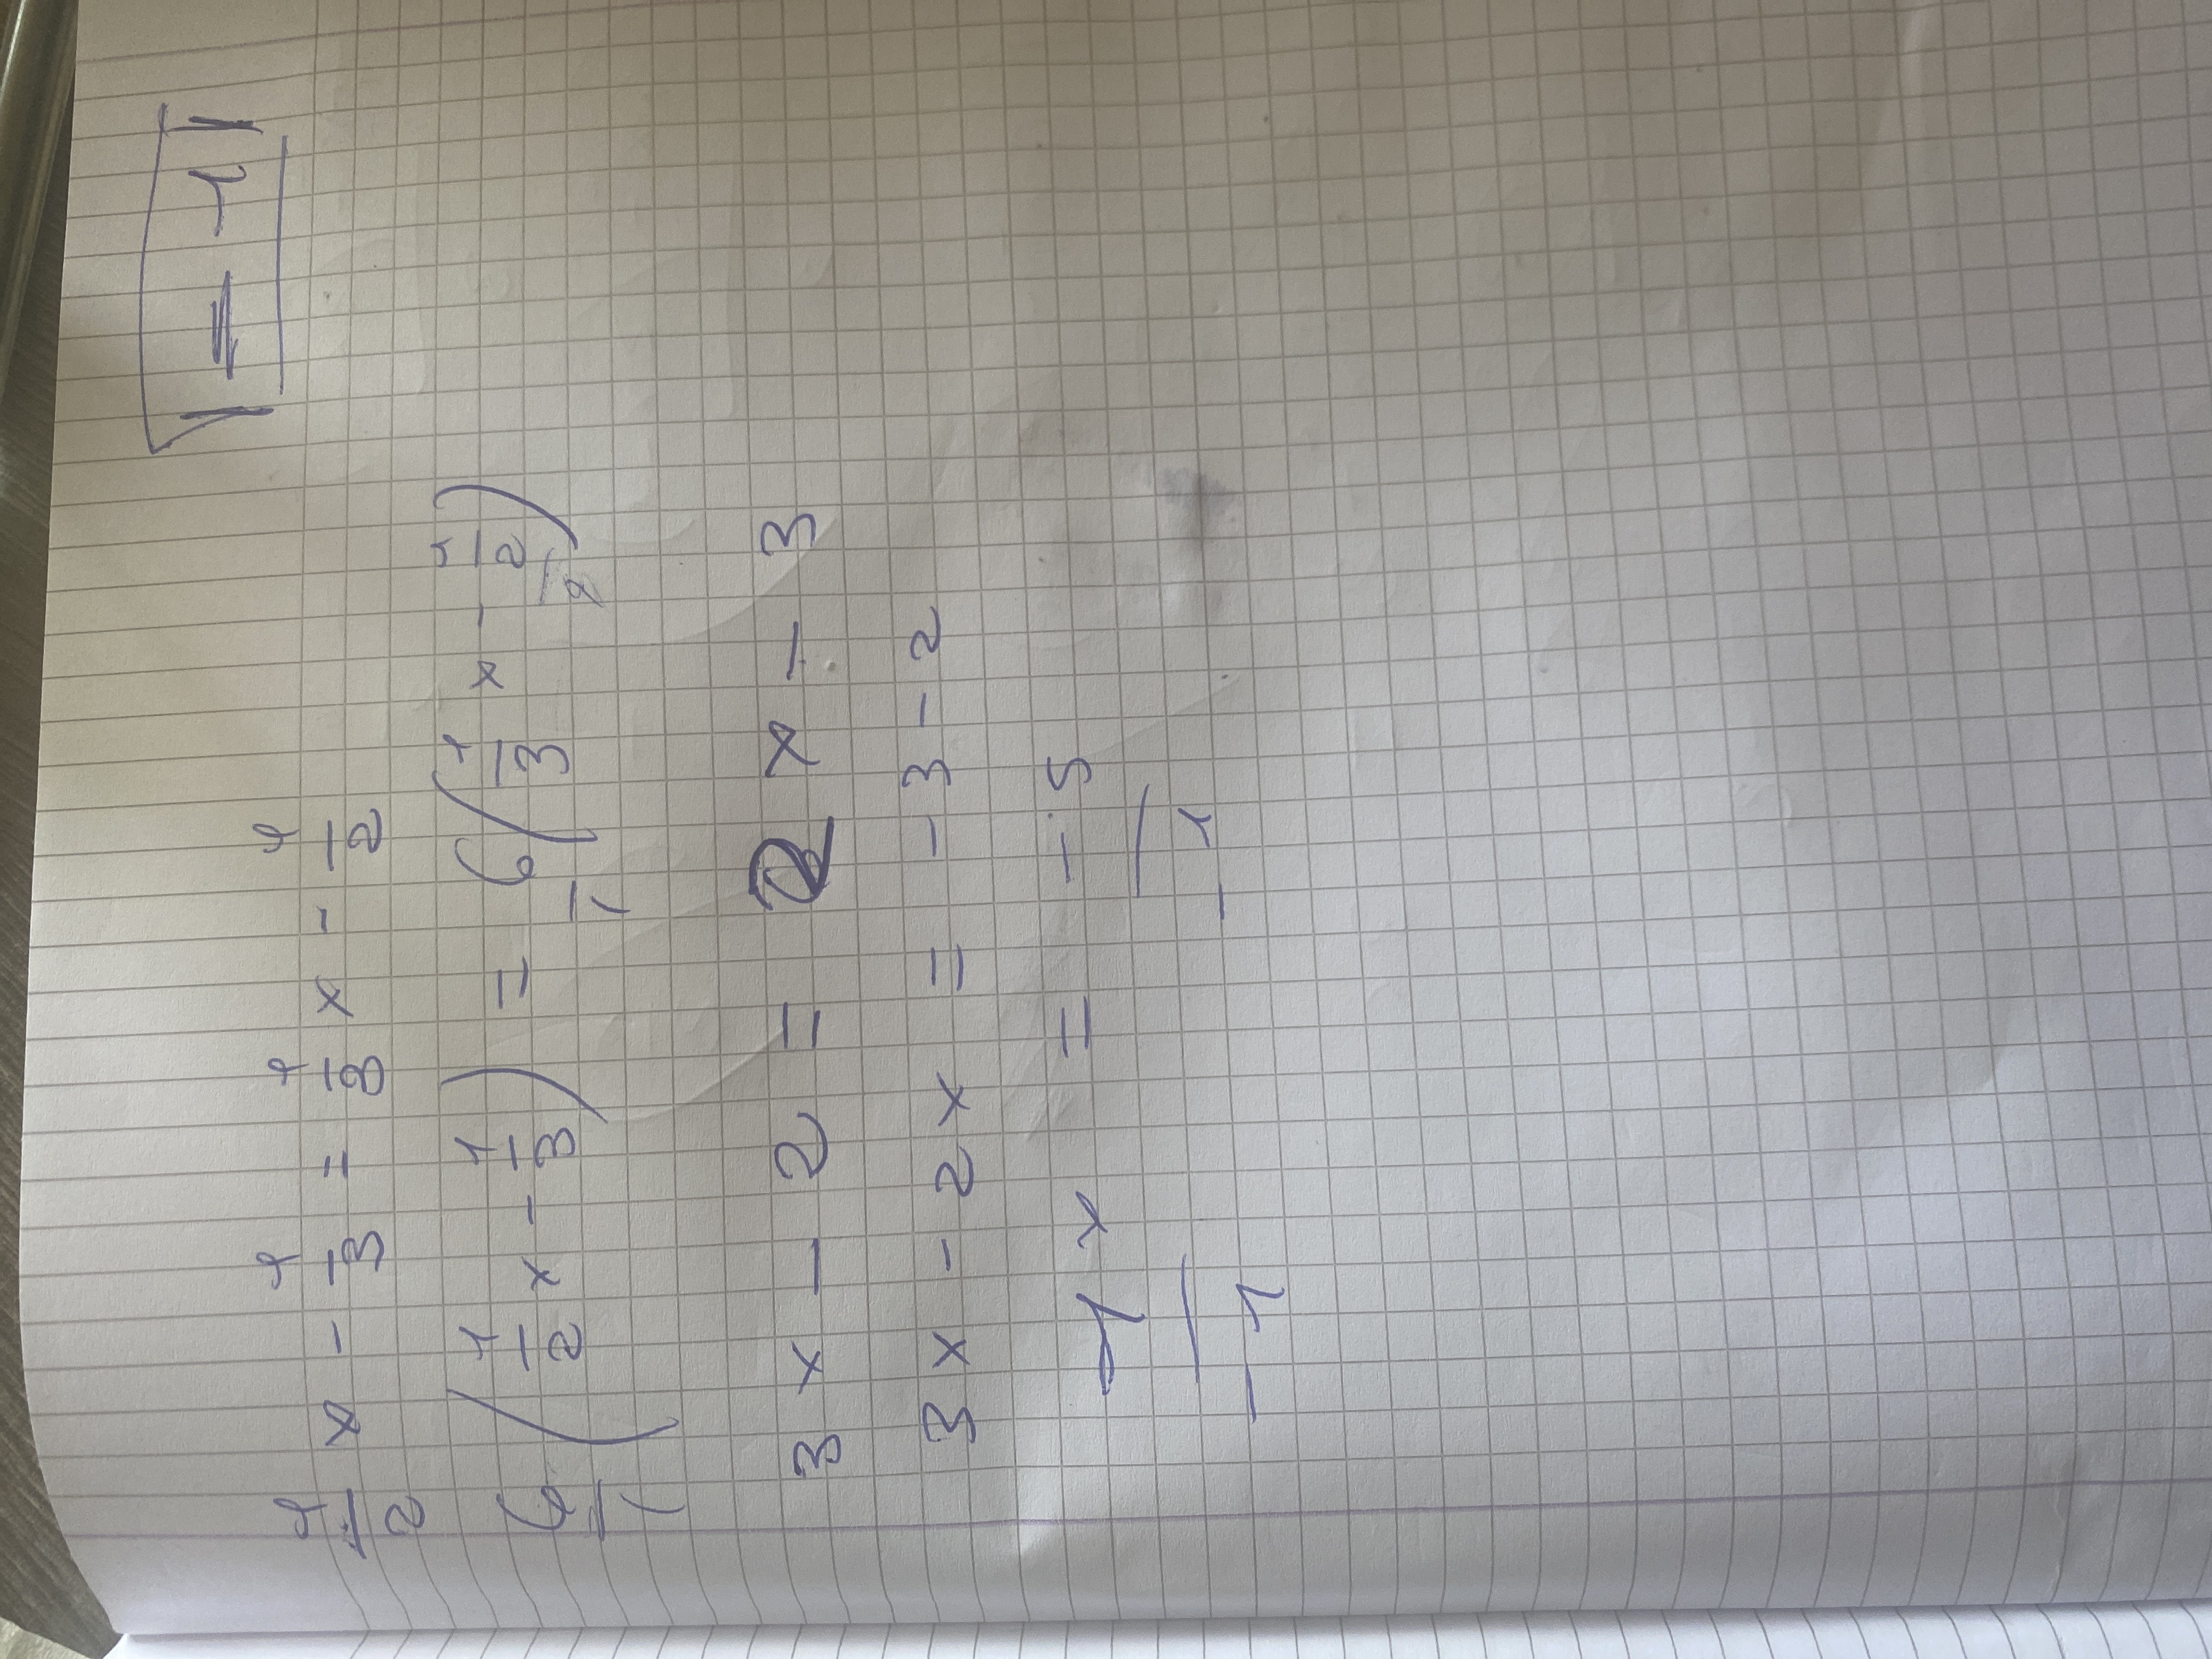 = -1
1/2 x - 1/3 = 1/3 x - 1/2
6/1 ( 1/2 x - 1/3 ) = 6/1 ( 1/3 x - 1/2 )
3 x - 2 = 2 x - 3
3 x - 2 x = - 3 - 2
-1 x = - 5
- 1 - 1